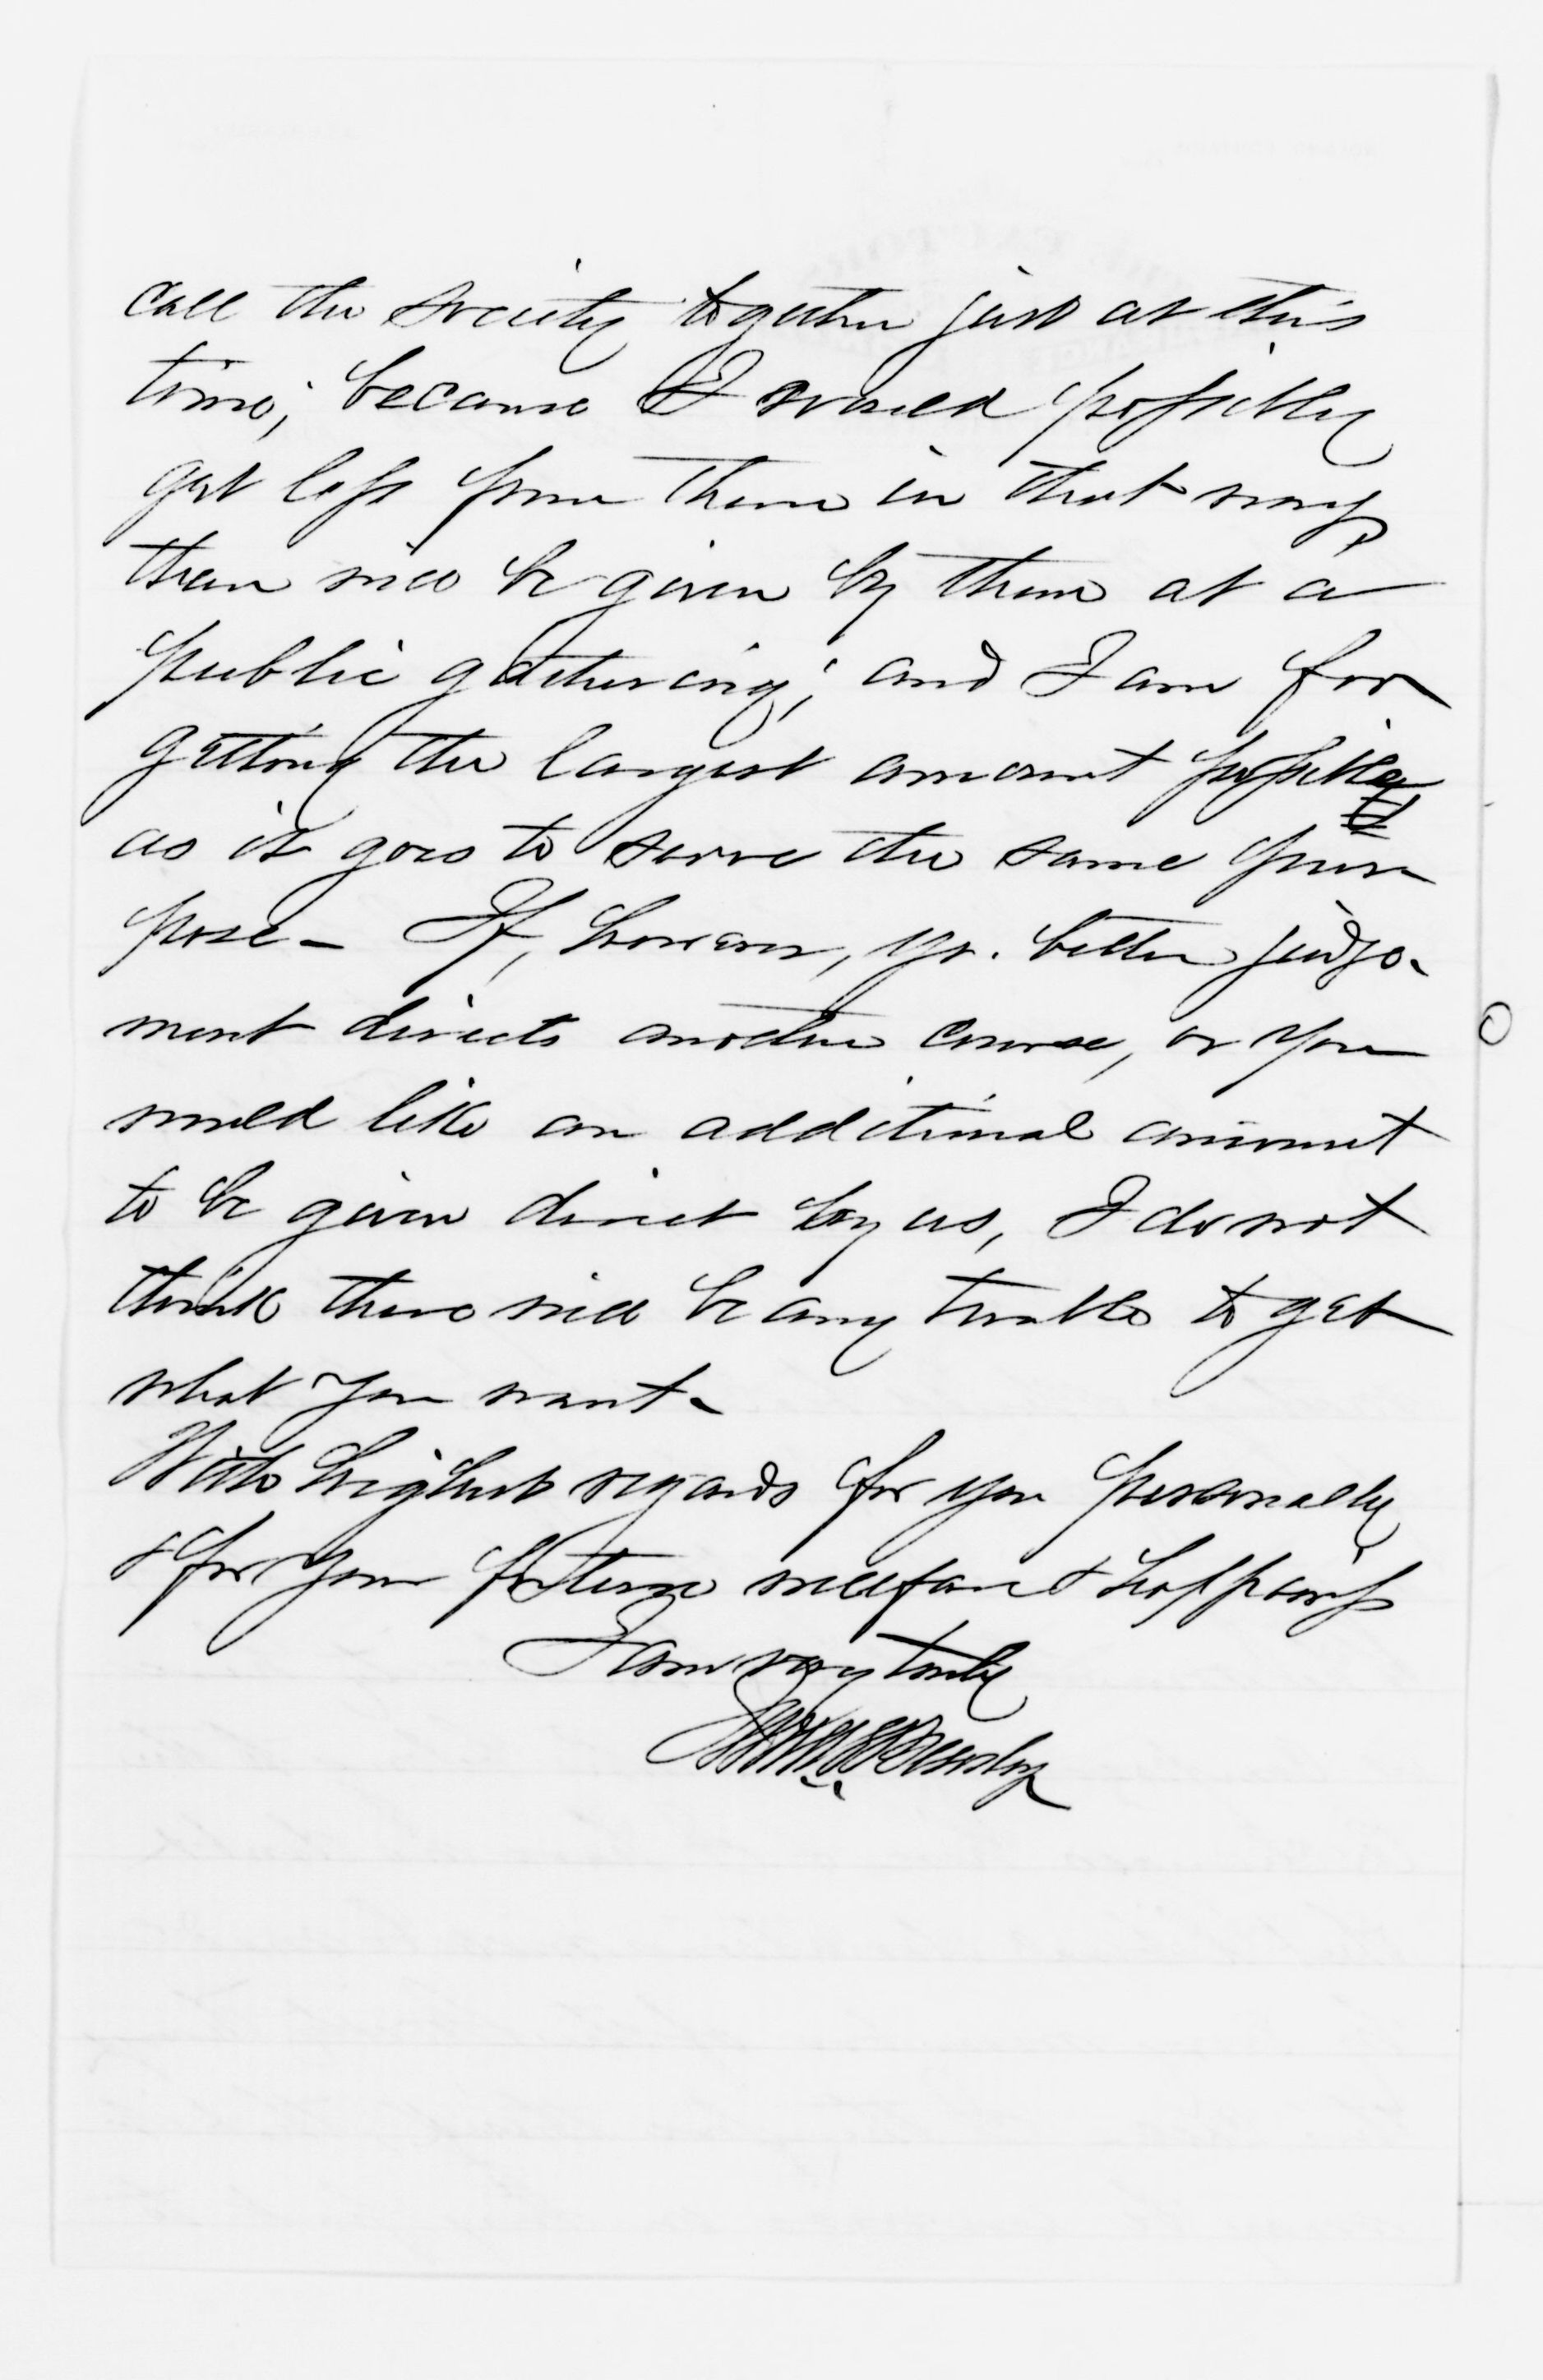 call the society together just at this
time; because I would possibly
get less from them in that way,
than will be given by them at a
public gathering; and I am for
getting the largest amount possible
as it goes to serve the same pur
pose - If, however, yr. better judge-
ment directs another course, or you
would like an additional amount
to be given direct by us, I do not
think there will be any trouble to get
what you want -
With highest regards for you personally
& for your future welfare & happiness
I am very truly